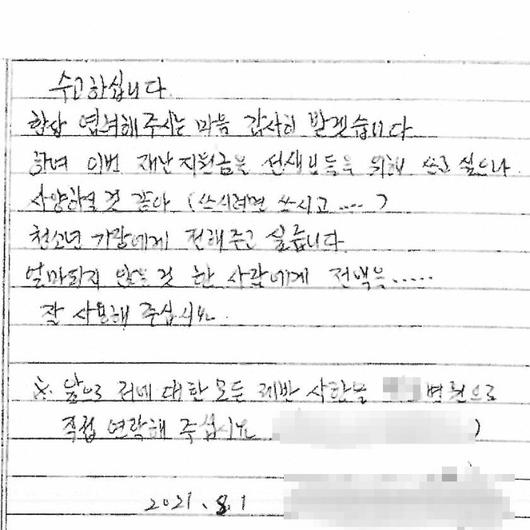 수고하십니다.
항상 염려해 주시는 마음 감사히 받겠습니다
하여 이번 재난지원금은 선생님들을 위해 쓰고 싶으나
사양하실 것 같아 (쓰시려면 쓰시고 ....)
청소년 가장에게 전해주고 싶습니다.
얼마되지 않는 것 한 사람에게 전액을.....
잘 사용해 주십시요.
※ 앞으로 저에 대한 모든 제반 사항은 병원으로
직접 연락해 주십시요 )
2021. 8. 1